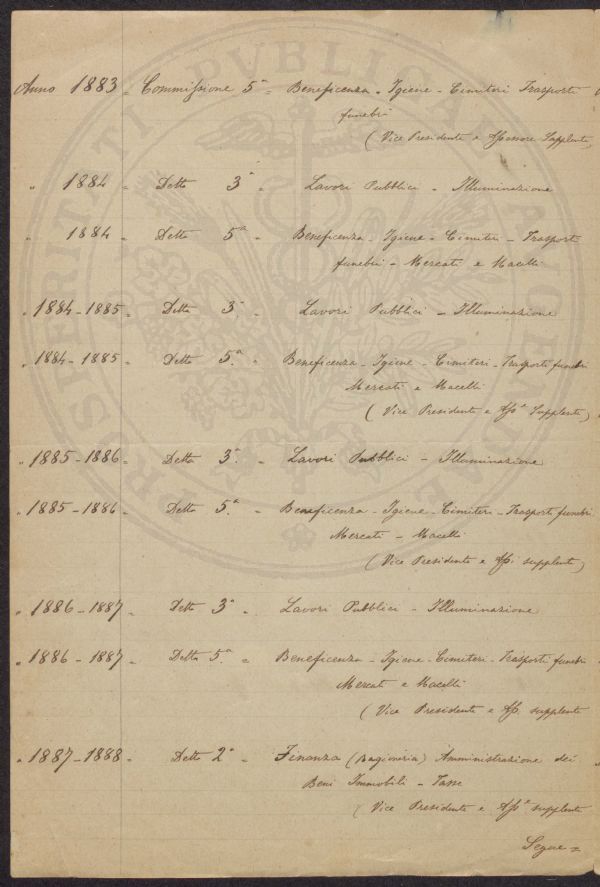 Anno 1883 = Commissione 5ª = Beneficenza - Igiene - Cimiteri Trasporti
funebri
(Vice Presidente e Assessore Supplente)
" 1884 = Detta 3ª = Lavori Pubblici - Illuminazione
" 1884 = Detta 5ª = Beneficenza - Igiene - Cimiteri - Trasporti
funebri - Mercati e Macelli
" 1884-1885 = Detta 3ª = Lavori Pubblici - Illuminazione
" 1884-1885 = Detta 5ª = Beneficenza - Igiene - Cimiteri - Trasporti funebri
Mercati e Macelli
(Vice Presidente e Assª Supplente)
" 1885-1886 = Detta 3ª = Lavori Pubblici - Illuminazione
" 1885-1886 = Detta 5ª = Beneficenza - Igiene - Cimiteri - Trasporti funebri
Mercati - Macelli
(Vice Presidente e Ass: supplente)
" 1886-1887 = Detta 3ª = Lavori Pubblici - Illuminazione
" 1886-1887 = Detta 5ª = Beneficenza - Igiene - Cimiteri - Trasporti funebri
Mercati e Macelli
(Vice Presidente e Ass: supplente
" 1887-1888 = Detta 2ª = Finanza (Ragioneria) Amministrazione dei
Beni Immobili - Tasse
(Vice Presidente e Assª supplente
Segue =
PROSPERITATI PVBLICAE